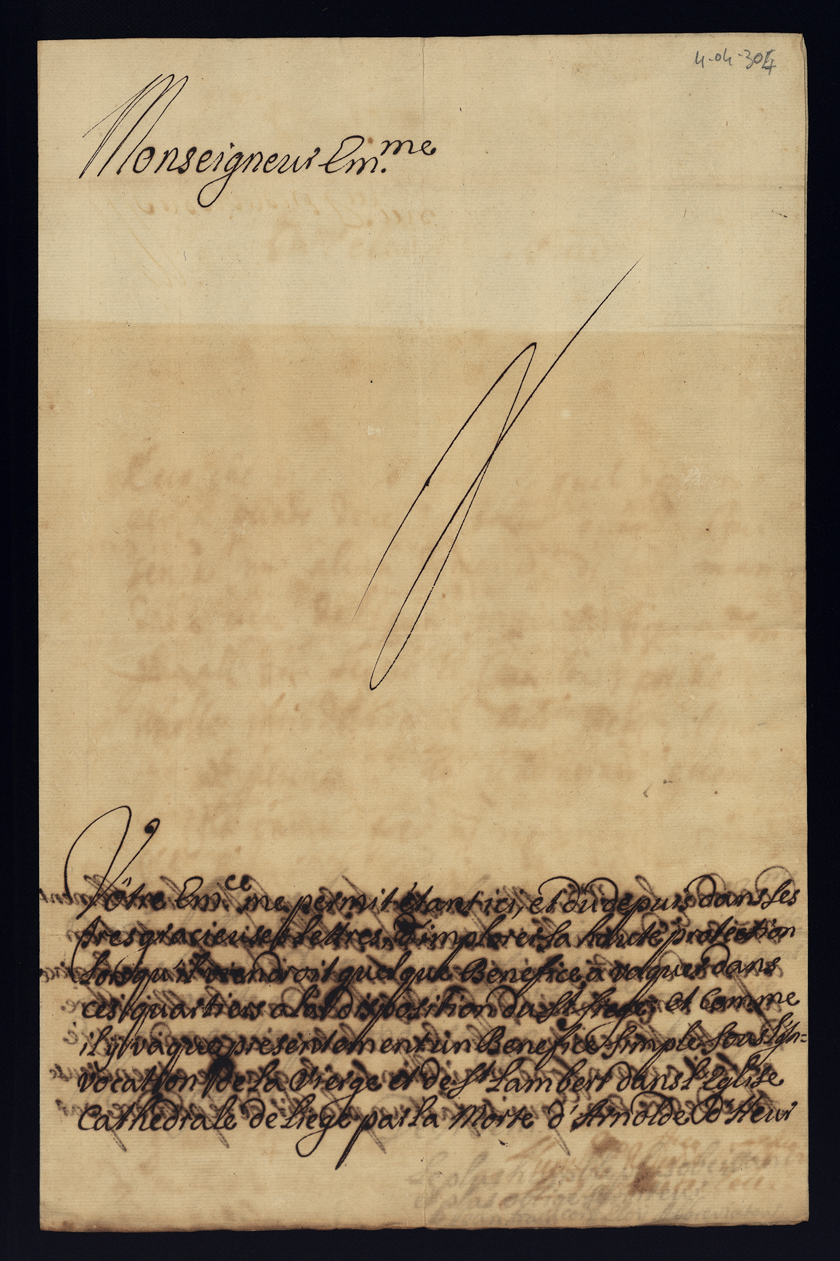 4-04-304
Monseigneur Em.me
Vôtre Em.ce me permit étant ici, et du depuis dans ses
tres gracieuses Lettres, d'implorer sa haute protection
Lorsqu'il viendroit quelque Benefice à vaquer dans
ces quartiers a la disposition du St Siege, et Comme
il y vâque presentement un Benefice simple sous l'jn=
vocation de la Vierge et de St Lambert dans l'Eglise
Cathedrale de Liege par la Morte d'Arnolde D'Heur